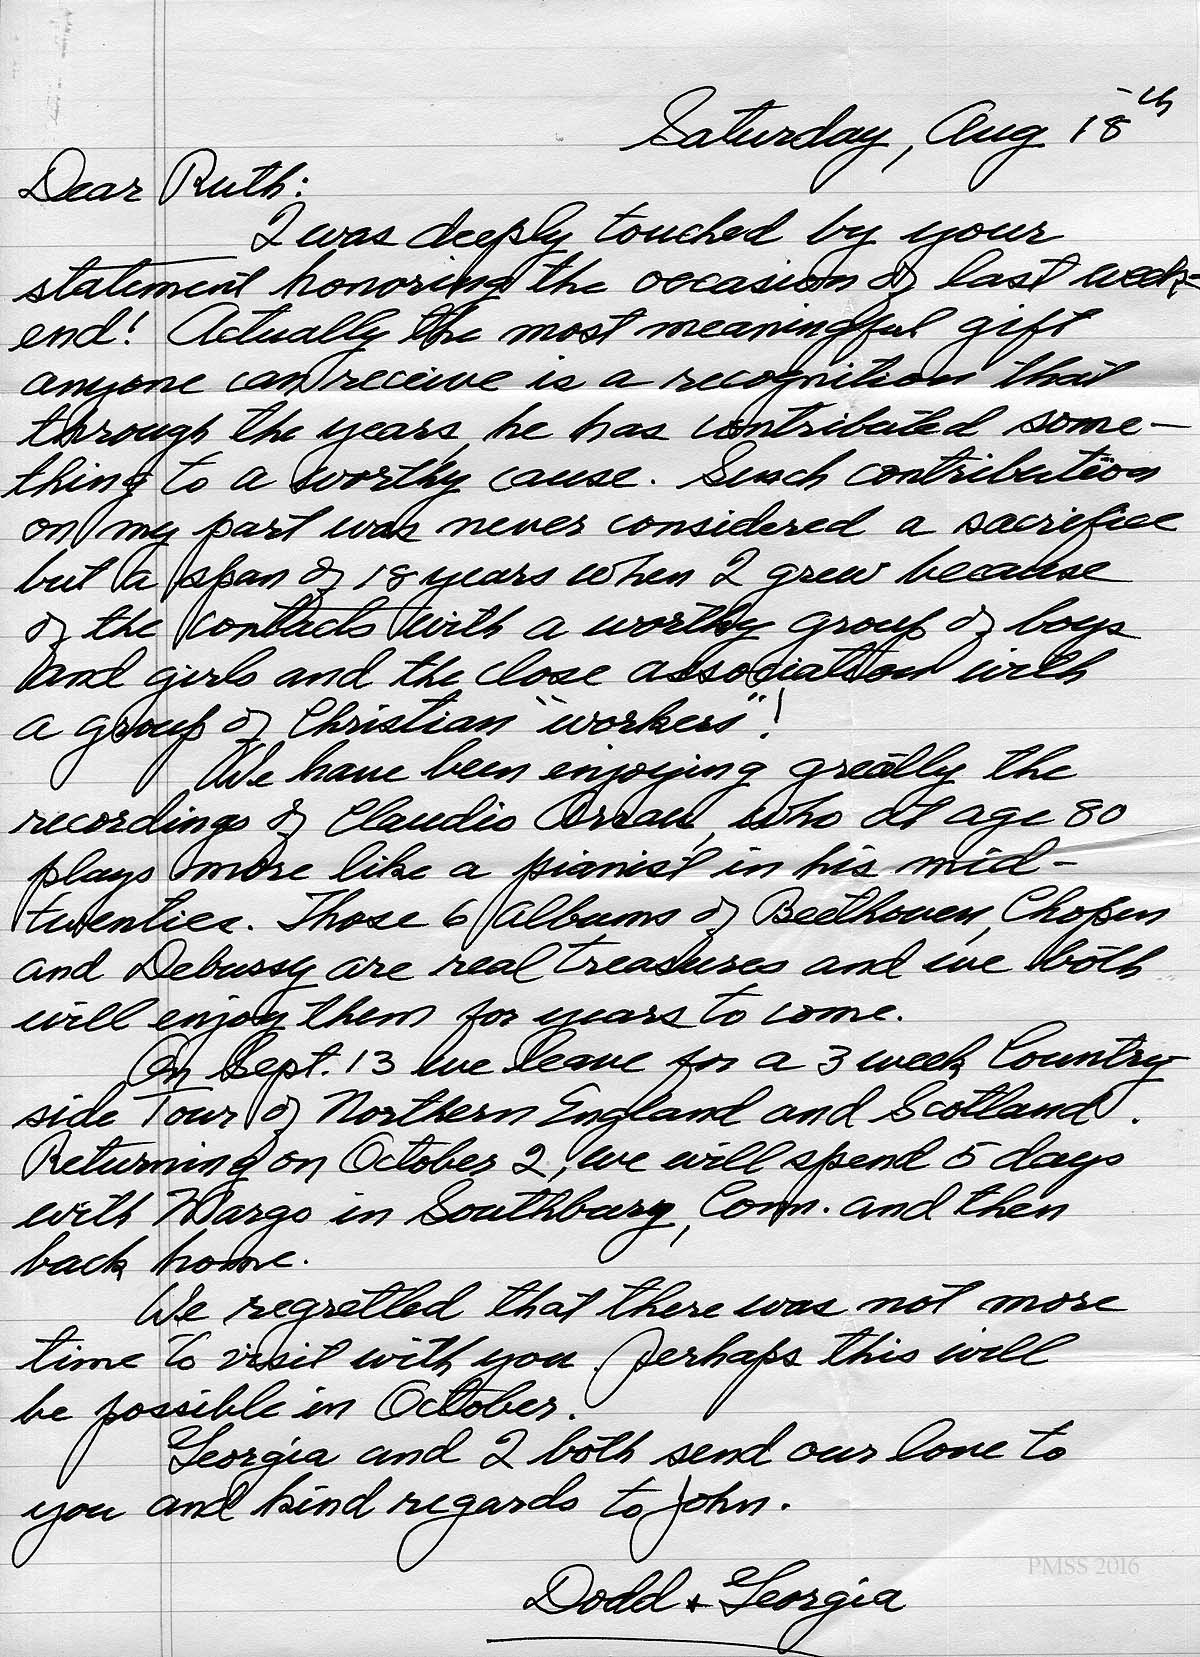 Saturday, Aug 18th
Dear Ruth:
I was deeply touched by your
statement honoring the occasion of last week-
end! Actually the most meaningful gift
anyone can receive is a recognition that
through the years, he has contributed some-
thing to a worthy cause. Such contribution
on my part was never considered a sacrifice
but a span of 18 years when I grew because
of the contacts with a worthy group of boys
and girls and the close association with
a group of Christian "workers"!
We have been enjoying greatly the
recordings of Claudio Arrau, who at age 80
plays more like a pianist in his mid-
twenties. Those 6 albums of Beethoven, Chopin
and Debussy are real treasures and we both
will enjoy them for years to come.
On Sept. 13 we leave for a 3 week Country
side Tour of Northern England and Scotland.
Returning on October 2, we will spend 5 days
with Margo in Southbury, Conn. and then
back home.
We regretted that there was not more
time to visit with you. Perhaps this will
be possible in October.
Georgia and I both send our love to
you and kind regards to John.
Dodd & Georgia
PMSS 2016